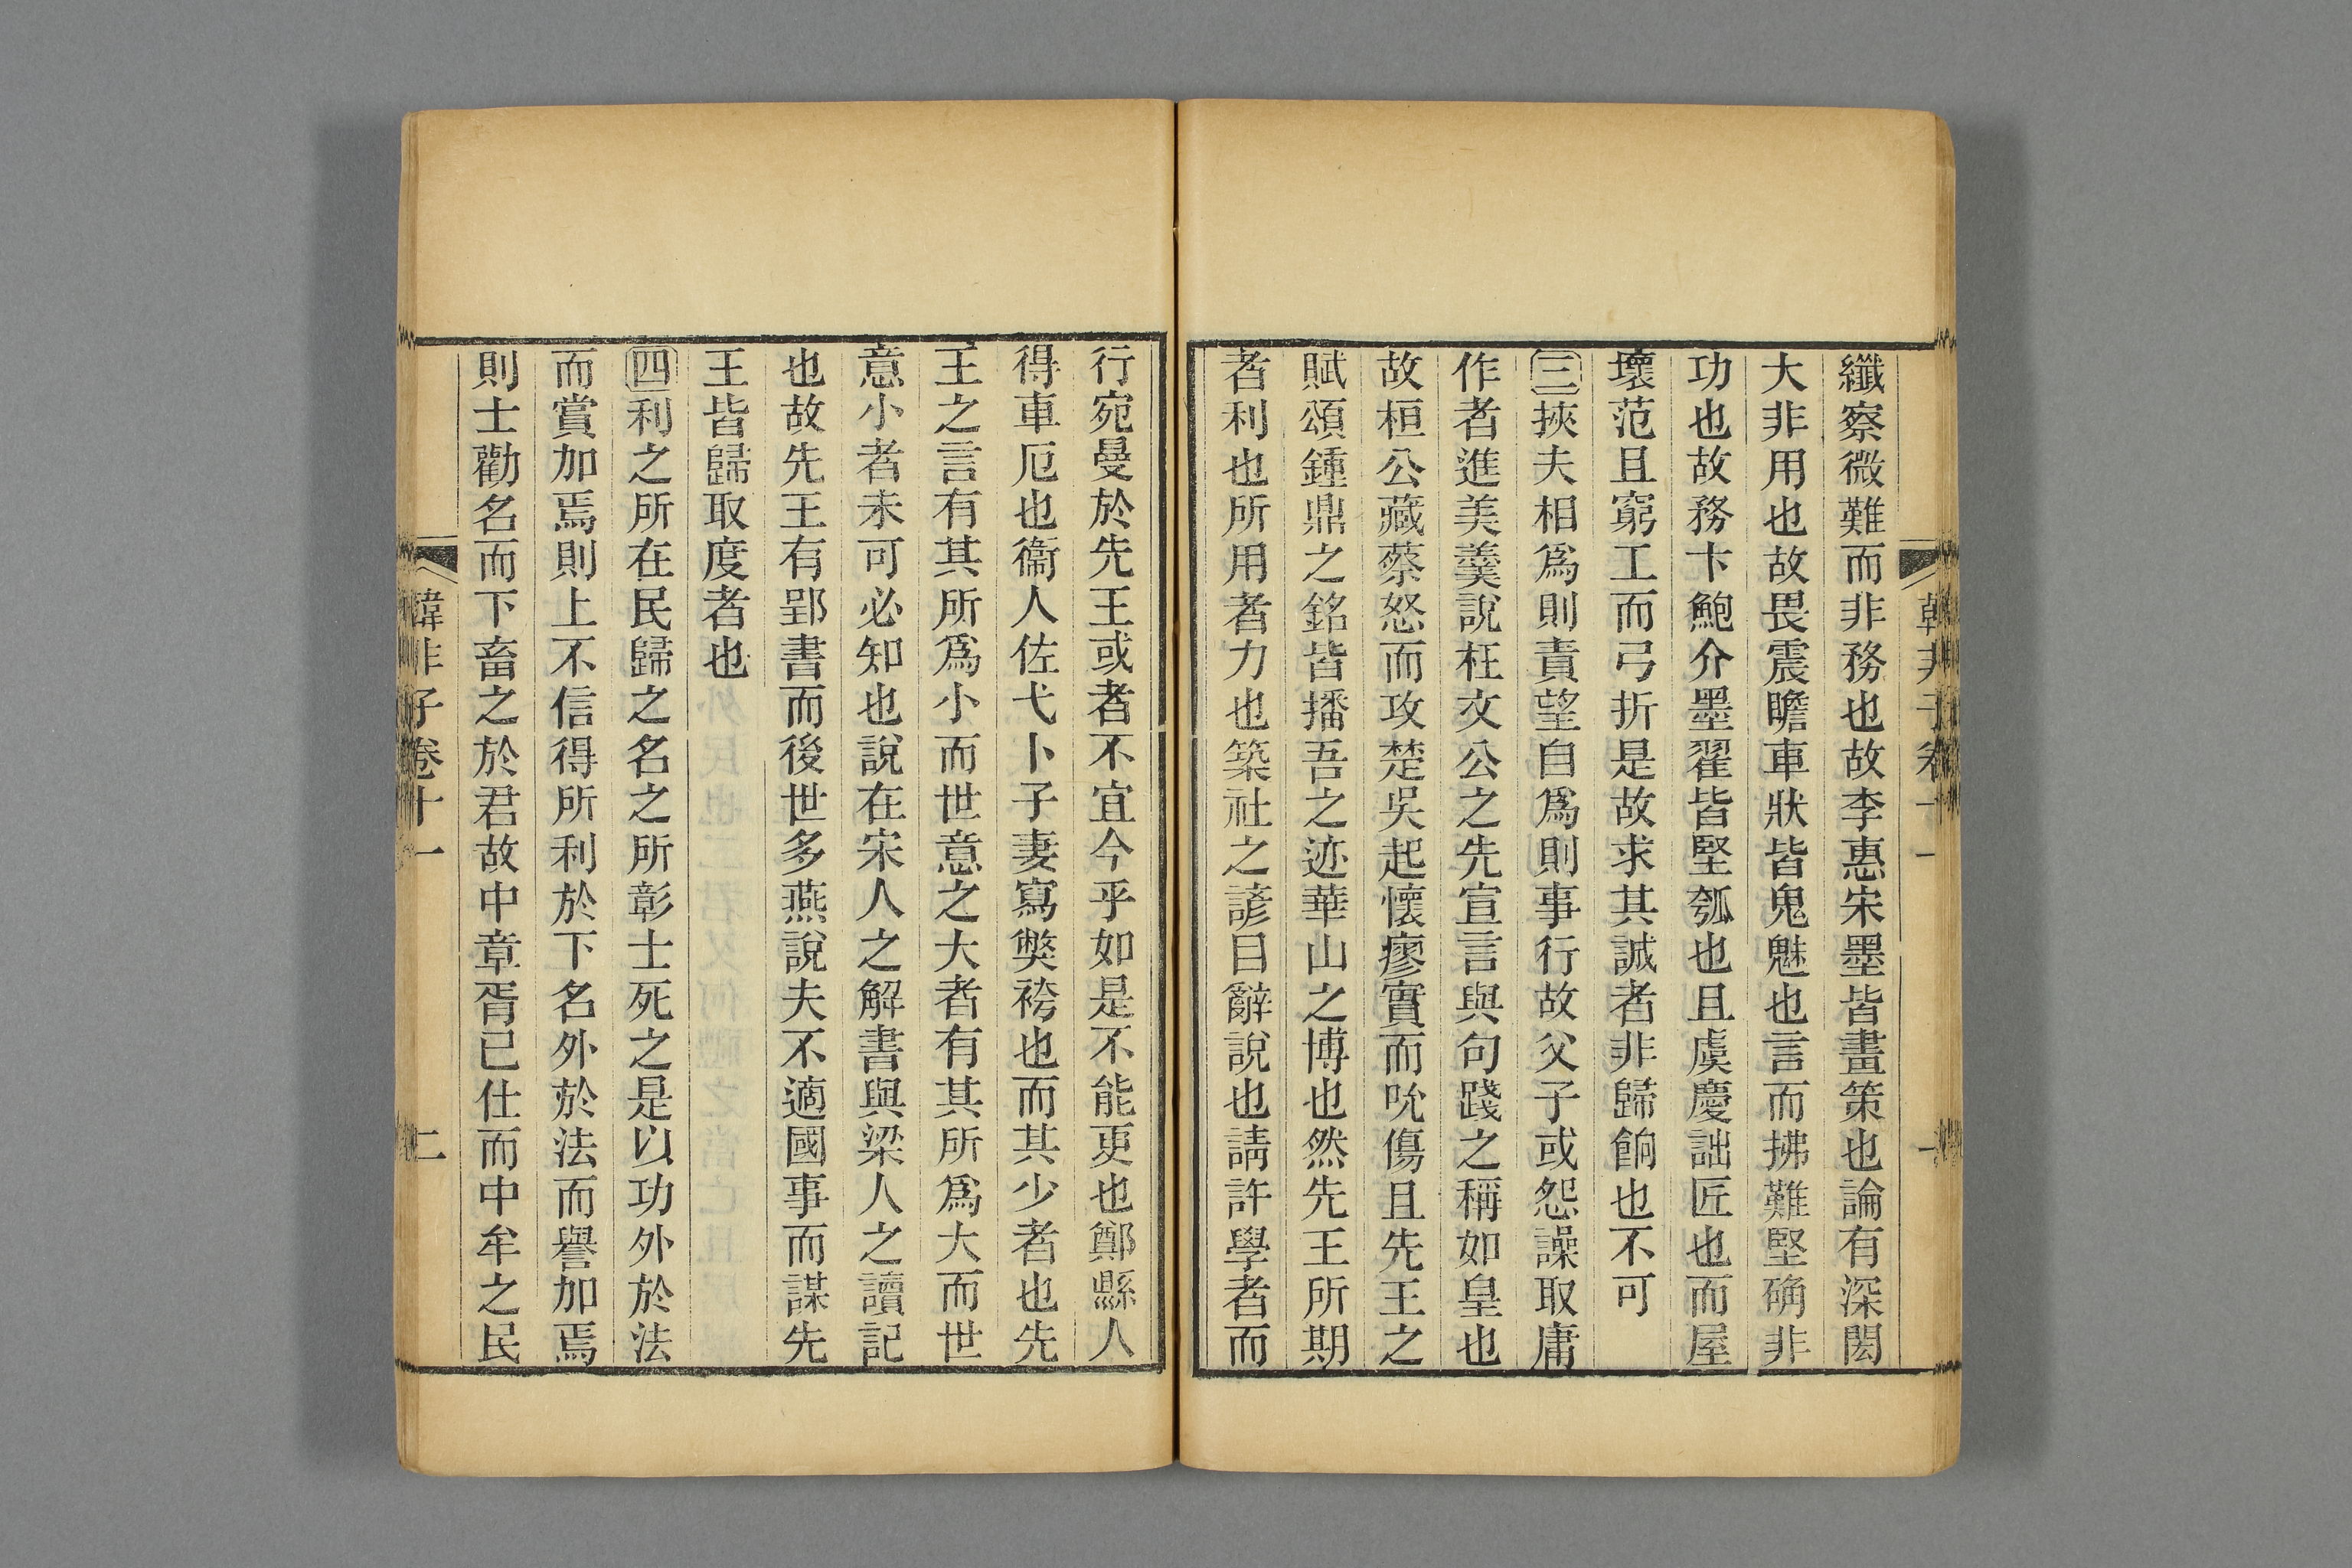 韓非子卷十一 一
纖察微難而非務也故李惠宋墨皆畫策也論有深閎
大非用也故畏震瞻車狀皆鬼魅也言而拂難堅确非
功也故務卞鮑介墨翟皆堅瓠也且虞慶詘匠也而屋
壞范且窮工而弓折是故求其誠者非歸餉也不可
三挾夫相爲則責望自爲則事行故父子或怨譟取庸
作者進美羹說在文公之先宣言與句踐之稱如皇也
故桓公藏蔡怒而攻楚吳起懷瘳實而吮傷且先王之
賦頌鍾鼎之銘皆播吾之迹華山之博也然先王所期
者利也所用者力也築社之諺目辭說也請許學者而
行宛曼於先王或者不宜今乎如是不能更也鄭縣人
得車厄也衞人佐弋卜子妻寫獘袴也而其少者也先
王之言有其所爲小而世意之大者有其所爲大而世
意小者未可必知也說在宋人之解書與梁人之讀記
也故先王有郢書而後世多燕說夫不適國事而謀先
王皆歸取度者也
四利之所在民歸之名之所彰士死之是以功外於法
而賞加焉則上不信得所利於下名外於法而譽加焉
則士勸名而下畜之於君故中章胥已仕而中牟之民
韓非子卷十一 二